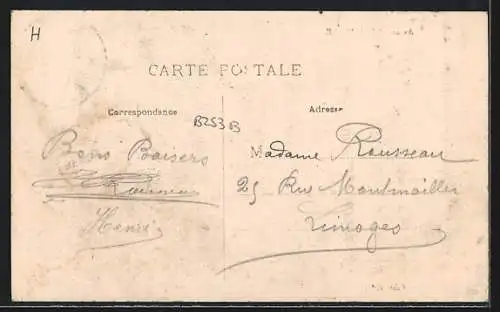 H
CARTE POSTALE
Correspondance
Adresse
B253B
Bons Baisers
Henri
Madame Rousseau
25 Rue Montmailler
Limoges